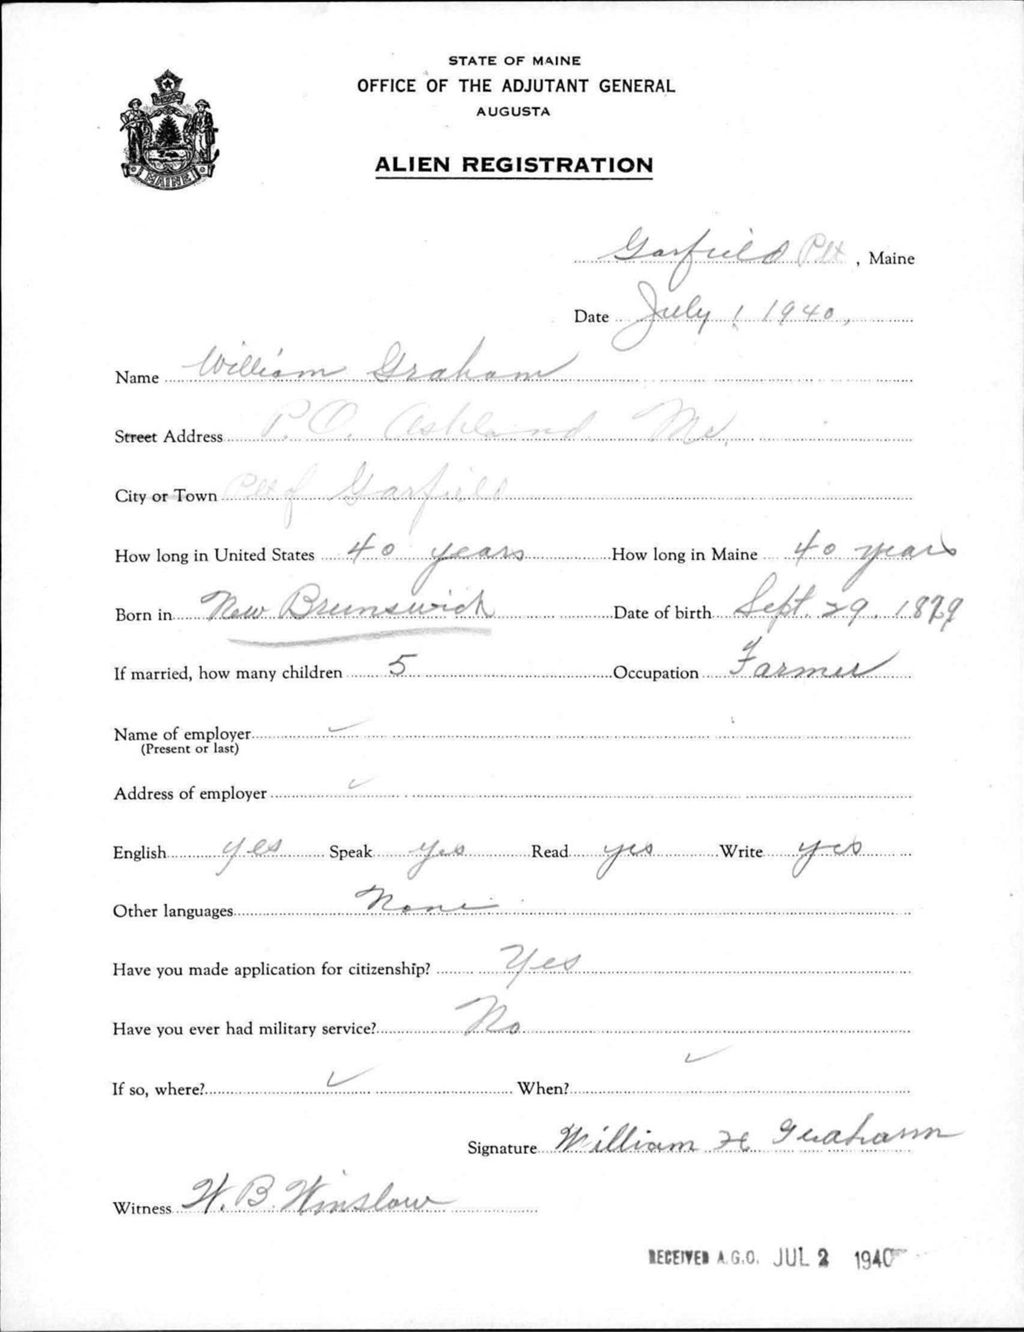 STATE OF MAINE
OFFICE OF THE ADJUTANT GENERAL
AUGUSTA
ALIEN REGISTRATION
MAINE
Garfield Plt, Maine
Date July 1, 1940,
Name William Graham
Street Address P.O. Ashland Me.
City or Town Plt of Garfield
How long in United States 40 years How long in Maine 40 years
Born in New Brunswick Date of birth Sept. 29, 1879
If married, how many children 5 Occupation Farmer
Name of employer ✓
(Present or last)
Address of employer ✓
English yes Speak yes Read yes Write yes
Other languages None
Have you made application for citizenship? Yes
Have you ever had military service? No
If so, where? ✓ When? ✓
Signature William H Graham
Witness H. B. Winslow
RECEIVED A.G.O. JUL 2 1940